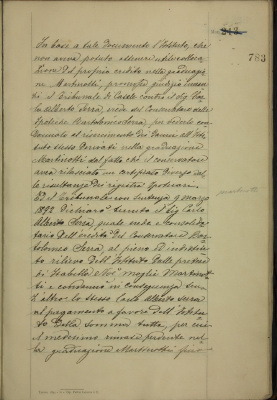 243
763
In base a tale documento l'Istituto, che
non aveva potuto ottenere utile colloca-
zione del proprio credito nella graduazio-
ne Martinotti, promosse giudizio innanzi
il Tribunale di Casale contro il Sig. Car-
lo Alberto Serra, erede del Conservatore delle
Ipoteche Bartolomeo Serra, per sentirlo con-
dannato al risarcimento dei danni all'Isti-
tuto stesso derivati nella graduazione
Martinotti dal fatto che il conservatore
aveva rilasciato un certificato diverso dal-
le resultanze dei registri ipotecari.
Ed il Tribunale con sentenza 9 marzo
1892 dichiarò tenuto il Sig. Carlo
Alberto Serra, quale erede
dell' eredità del Conservatore Bar-
tolomeo Serra, al pieno ed indistin-
to rilievo dell' Istituto dalle
di Isabella moglie Martinot-
ti e condannò in conseguenza sen-
z' altro lo stesso Carlo Alberto Serra
al pagamento a favore dell' Istitu-
to della somma tutta, per cui
il medesimo rimase perdente nel-
la graduazione Martinotti